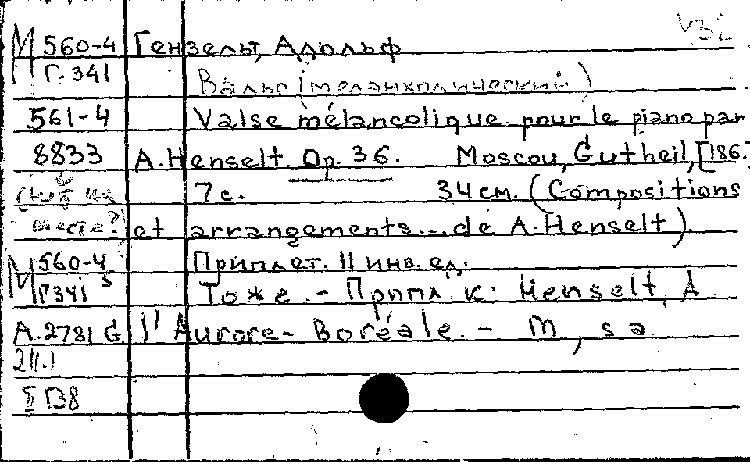 М 560-4 Гензельт, Адольф
Г-341 Вальс (меланхолический)
561-4 Valse mélancolique pour le piano par
8833 A. Henselt. Op. 36. Moscou, Gutheil, [186.
7 с. 34 см. (Compositions
месте? et arrangements... de A. Henselt)
М 560-4 Приплет. 11 инв. ед.
Г341 То же. - Припл. к: Henselt, A
A.2781 G l'Aurore-Boréale. - M, s a